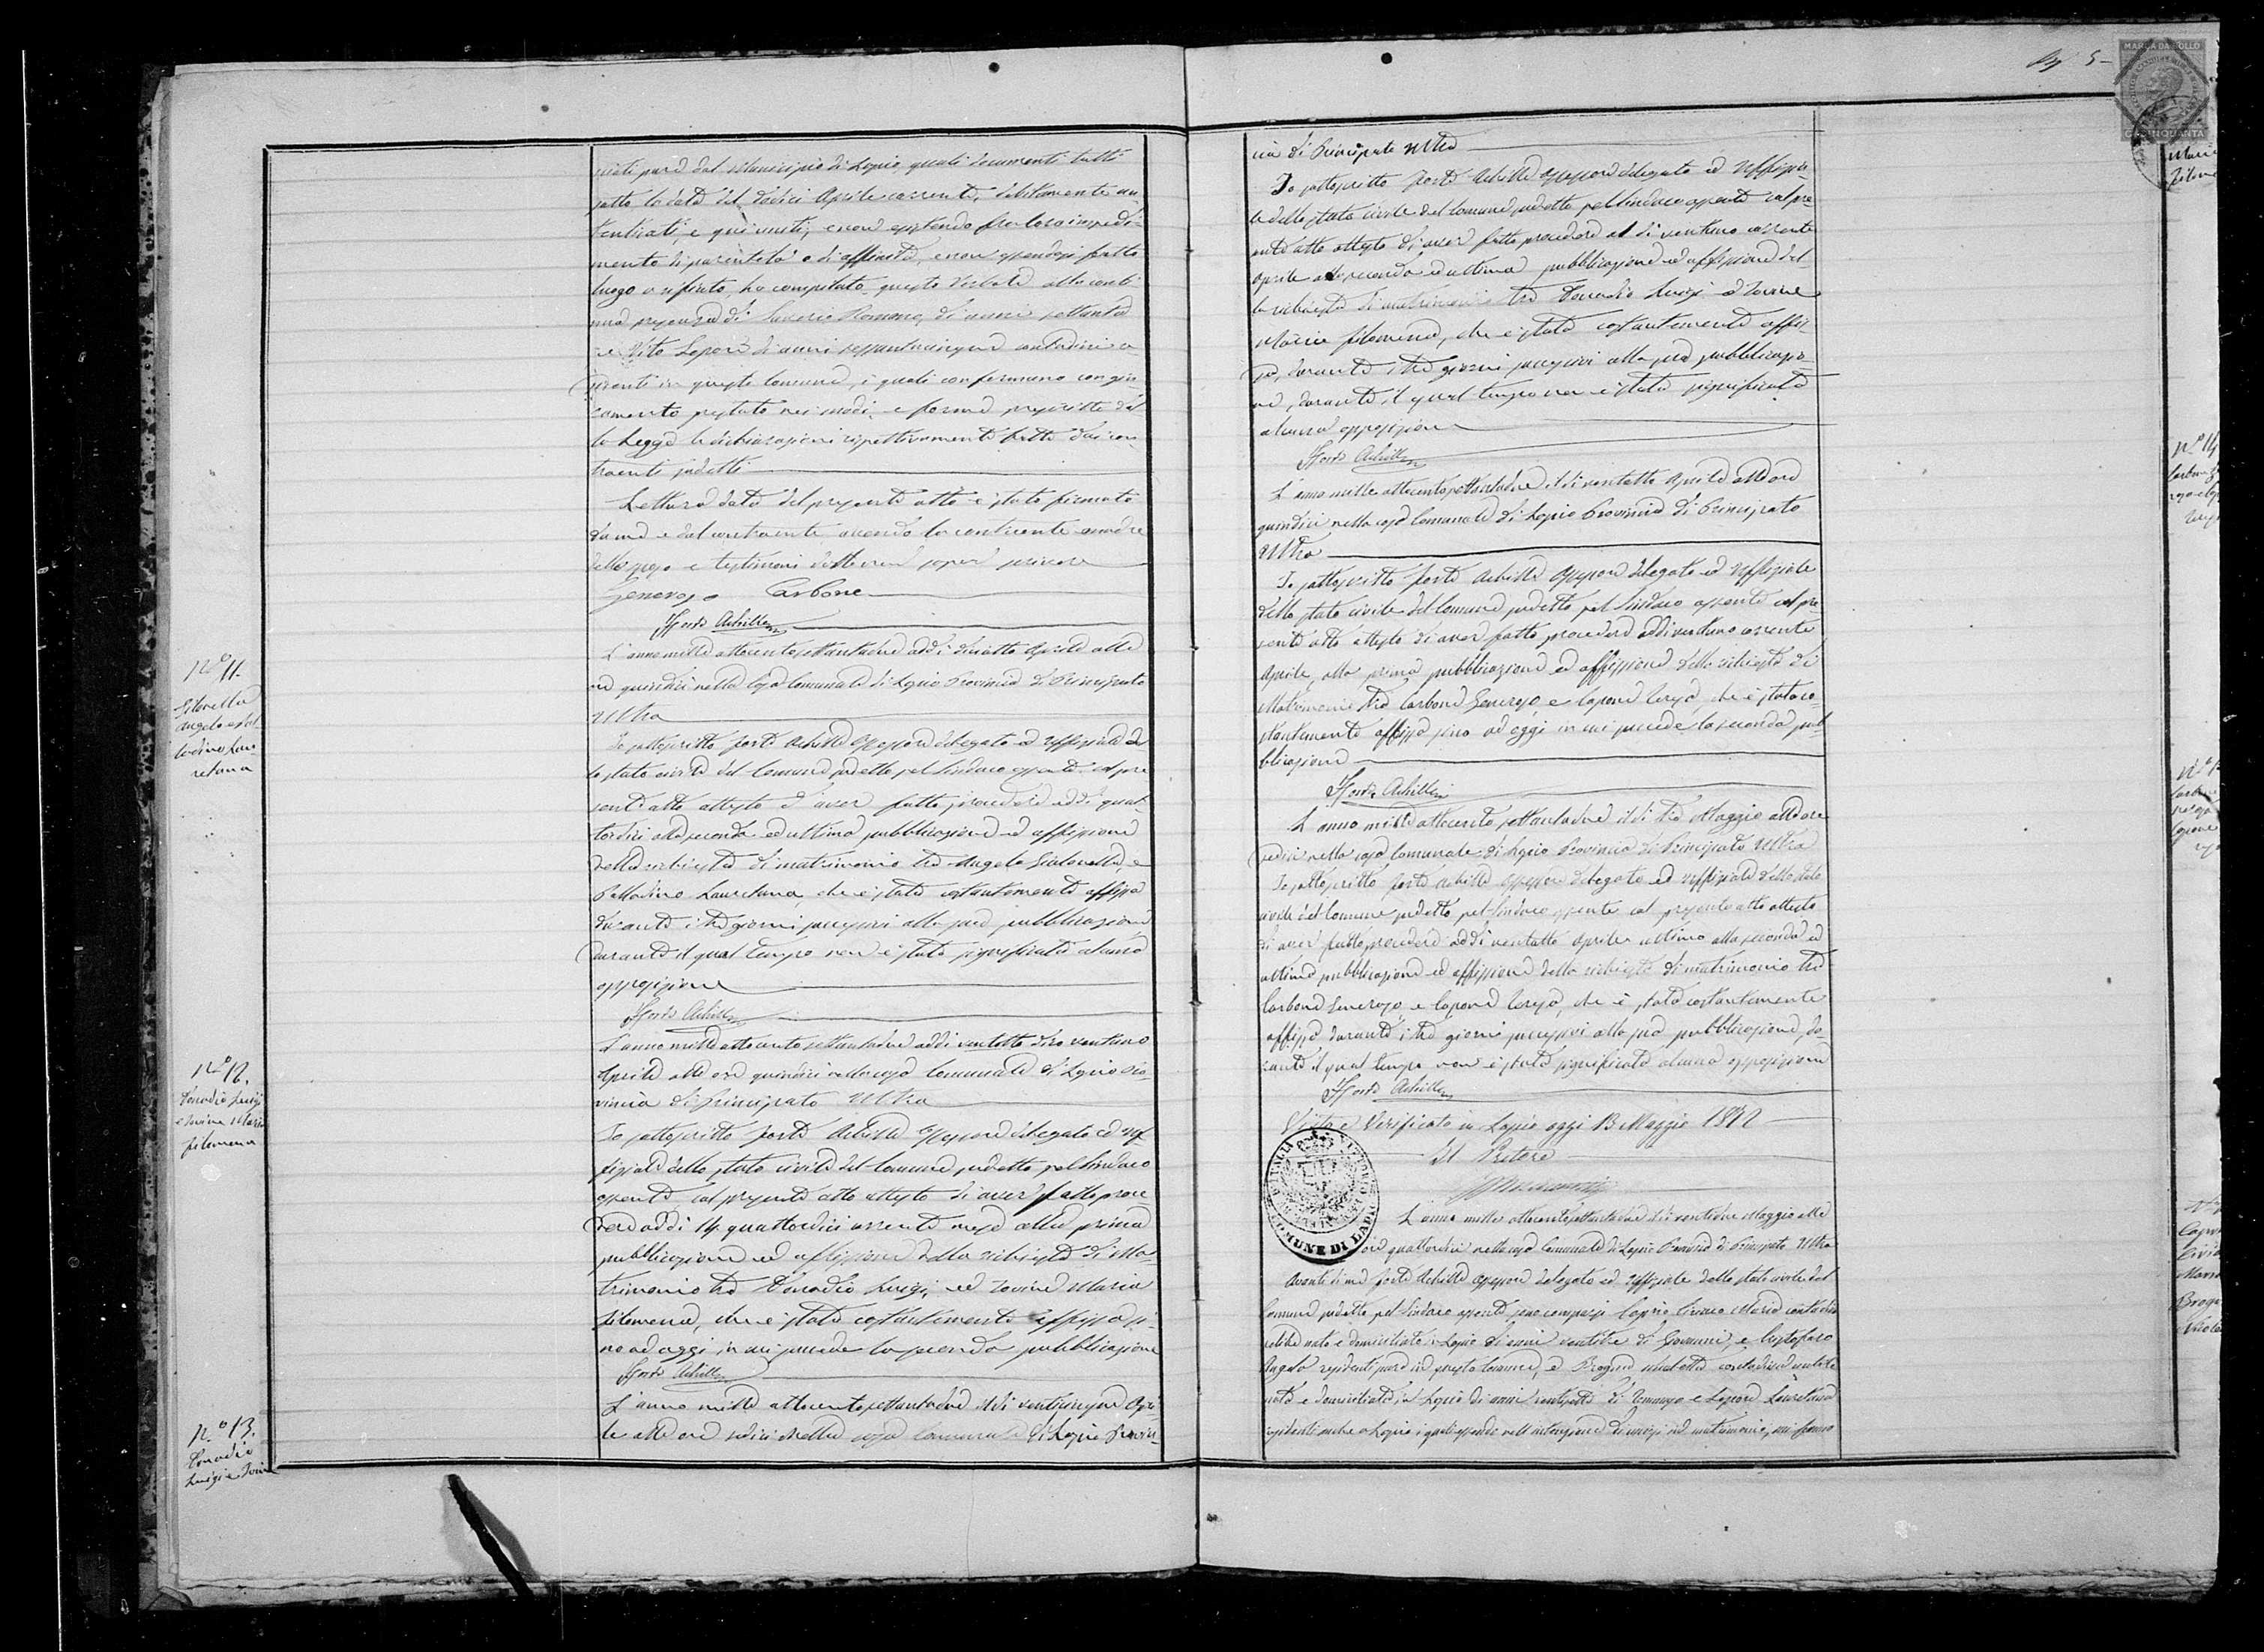 N.º 11.
Gilonella
Angelo e Pal-
ladino Lau-
retana
N.º 12.
Venadio Luigi
e Iovine Maria
Filomena
N.º 13.
Venadio
Luigi e Iovine
pure dal Municipio di Lapio, quali documenti tutti
sotto la data del dodici Aprile corrente, debitamente au-
tenticati, e qui uniti, e non esistendo fra loro impedi-
mento di parentela o di affinità, e non essendosi fatto
luogo a rifiuto, ho compilato questo verbale alla conti-
nua presenza di Saverio Romano, di anni settanta
e Vito Lepore di anni sessantacinque contadini re-
sidenti in questo Comune, i quali confermano con giu-
ramento prestato nei modi e forme prescritte dal-
la Legge le dichiarazioni rispettivamente fatte dai con-
traenti sudetti
Lettura data del presente atto è stato firmato
da me e dal contraente avendo la contraente madre
dello sposo e testimoni detto non saper scrivere
Generoso Carbone
Forte Achille
L'anno mille ottocento settantadue addì diciotto Aprile alle
ore quindici nella Casa Comunale di Lapio Provincia di Principato
Ultra
Io sottoscritto Forte Achille Assessore delegato ed Uffiziale del-
lo stato civile del Comune sudetto pel Sindaco assente col pre
sente atto attesto d'aver fatto procedere addì quat-
tordici alla seconda ed ultima pubblicazione ed affissione
della richiesta di matrimonio tra Angelo Gialonella, e
Palladino Lauretana che è stata costantemente affissa
durante i tre giorni successivi alla sua pubblicazione
durante il qual tempo non è stata significata alcuna
opposizione
Forte Achille
L'anno mille ottocento settantadue addì ventotto dico ventuno
Aprile alle ore quindici nella casa Comunale di Lapio Pro-
vincia di Principato Ultra
Io sottoscritto Forte Achille Assessore delegato ed Uf
fiziale dello stato civile del Comune sudetto pel Sindaco
assente col presente atto attesto di aver fatto proce
dere addì 14 quattordici corrente mese alla prima
pubblicazione ed affissione della richiesta di Ma-
trimonio tra Venadio Luigi, ed Iovine Maria
Filomena, che è stata costantemente affissa si-
no ad oggi in cui succede la seconda pubblicazione
Forte Achille
L'anno mille ottocento settantadue il dì venticinque Apri-
le alle ore sedici nella casa Comunale di Lapio Provin-
5
MARCA DA BOLLO
C. CINQUANTA
cia di Principato Ultra
Io sottoscritto Forte Achille Assessore delegato ed Uffizia-
le dello stato civile del Comune sudetto pel Sindaco assente col pre
sente atto attesto di aver fatto procedere al dì ventuno corrente
Aprile alla seconda ed ultima pubblicazione ed affissione del-
la richiesta di matrimonio tra Venadio Luigi ed Iovine
Maria Filomena, che è stata costantemente affis
sa, durante i tre giorni successivi alla sua pubblicazio-
ne, durante il qual tempo non è stata significata
alcuna opposizione
Forte Achille
L'anno mille ottocento settantadue il dì ventotto Aprile alle ore
quindici nella casa Comunale di Lapio Provincia di Principato
Ultra
Io sottoscritto Forte Achille Assessore delegato ed Uffiziale
dello stato civile del Comune sudetto pel Sindaco assente col pre
sente atto attesto di aver fatto procedere addì ventuno corrente
Aprile, alla prima pubblicazione ed affissione della richiesta di
Matrimonio tra Carbone Generoso e Capone Teresa, che è stata co-
stantemente affissa sino ad oggi in cui succede la seconda pub-
blicazione
Forte Achille
L'anno mille ottocento settantadue il dì tre Maggio alle ore
sedici nella casa Comunale di Lapio Provincia di Principato Ultra
Io sottoscritto Forte Achille Assessore delegato ed Uffiziale dello stato
civile del Comune sudetto pel Sindaco assente col presente atto attesto
di aver fatto procedere addì ventotto Aprile ultimo alla seconda ed
ultima pubblicazione ed affissione della richiesta di matrimonio tra
Carbone Generoso, e Capone Teresa, che è stata costantemente
affissa durante i tre giorni successivi alla sua pubblicazione, du-
rante il qual tempo non è stata significata alcuna opposizione
Forte Achille
Visto e Verificato in Lapio oggi 13 Maggio 1872
Il Pretore
COMUNE DI LAPIO
L'anno mille ottocento settantadue il dì ventidue Maggio alle
ore quattordici nella casa Comunale di Lapio Provincia di Principato Ultra
Avanti di me Forte Achille Assessore delegato ed Uffiziale dello stato civile del
Comune sudetto pel Sindaco assente sono comparsi Maria contadino
celibe nato e domiciliato a Lapio di anni ventitre di Giovanni, e Cristofaro
Angela residenti pure in questo Comune, e contadina nubile
nata e domiciliata in Lapio di anni di Tommaso e Lepore Lauretana
residenti anche a Lapio i quali essendo nell'intenzione di unirsi in matrimonio, mi hanno
Maria
Filome
N.º 14
Carbone
N.º
Carbone
Capone
Marr
Nicole